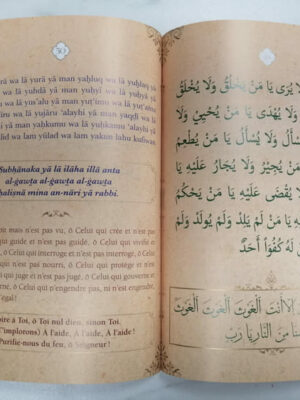 wa lā yurā yā man yaḫluq wa lā yuḫlaq yā
wa lā yuhdā yā man yuḥyī wa lā
lā yus'alu yā man yuṭ'imu wa lā yuṭ'amu
wa lā yujāru 'alayhi yā man yaqḍī wa lā
yā man yaḥkumu wa lā yuḥkamu 'alayhi
wa lam yūlad wa lam yakun lahu kufuwan
Subḥānaka yā lā ilāha illā anta
al-ġawṯa al-ġawṯa al-ġawṯa
mina an-nāri yā rabbi.
mais n'est pas vu, ô Celui qui crée et n'est pas
qui guide et n'est pas guidé, ô Celui qui vivifie et
Celui qui interroge et n'est pas interrogé, ô Celui
qui n'est pas nourri, ô Celui qui protège et
qui juge et n'est pas jugé, ô Celui qui gouverne
ô Celui qui n'engendre pas, ni n'est engendré, ni
égal !
à Toi, ô Toi nul dieu, sinon Toi.
implorons) À l'aide, À l'aide, À l'aide !
Purifie-nous du feu, ô Seigneur !
وَلَا يُرَى يَا مَنْ يَخْلُقُ وَلَا يُخْلَقُ
وَلَا يُهْدَى يَا مَنْ يُحْيِي وَلَا
وَلَا يُسْأَلُ يَا مَنْ يُطْعِمُ
يُجِيرُ وَلَا يُجَارُ عَلَيْهِ يَا
يُقْضَى عَلَيْهِ يَا مَنْ يَحْكُمُ
يَا مَنْ لَمْ يَلِدْ وَلَمْ يُولَدْ وَلَمْ
لَهُ كُفُوًا أَحَدٌ
إِلَّا أَنْتَ الْغَوْثَ الْغَوْثَ الْغَوْثَ
مِنَ النَّارِ يَا رَبِّ